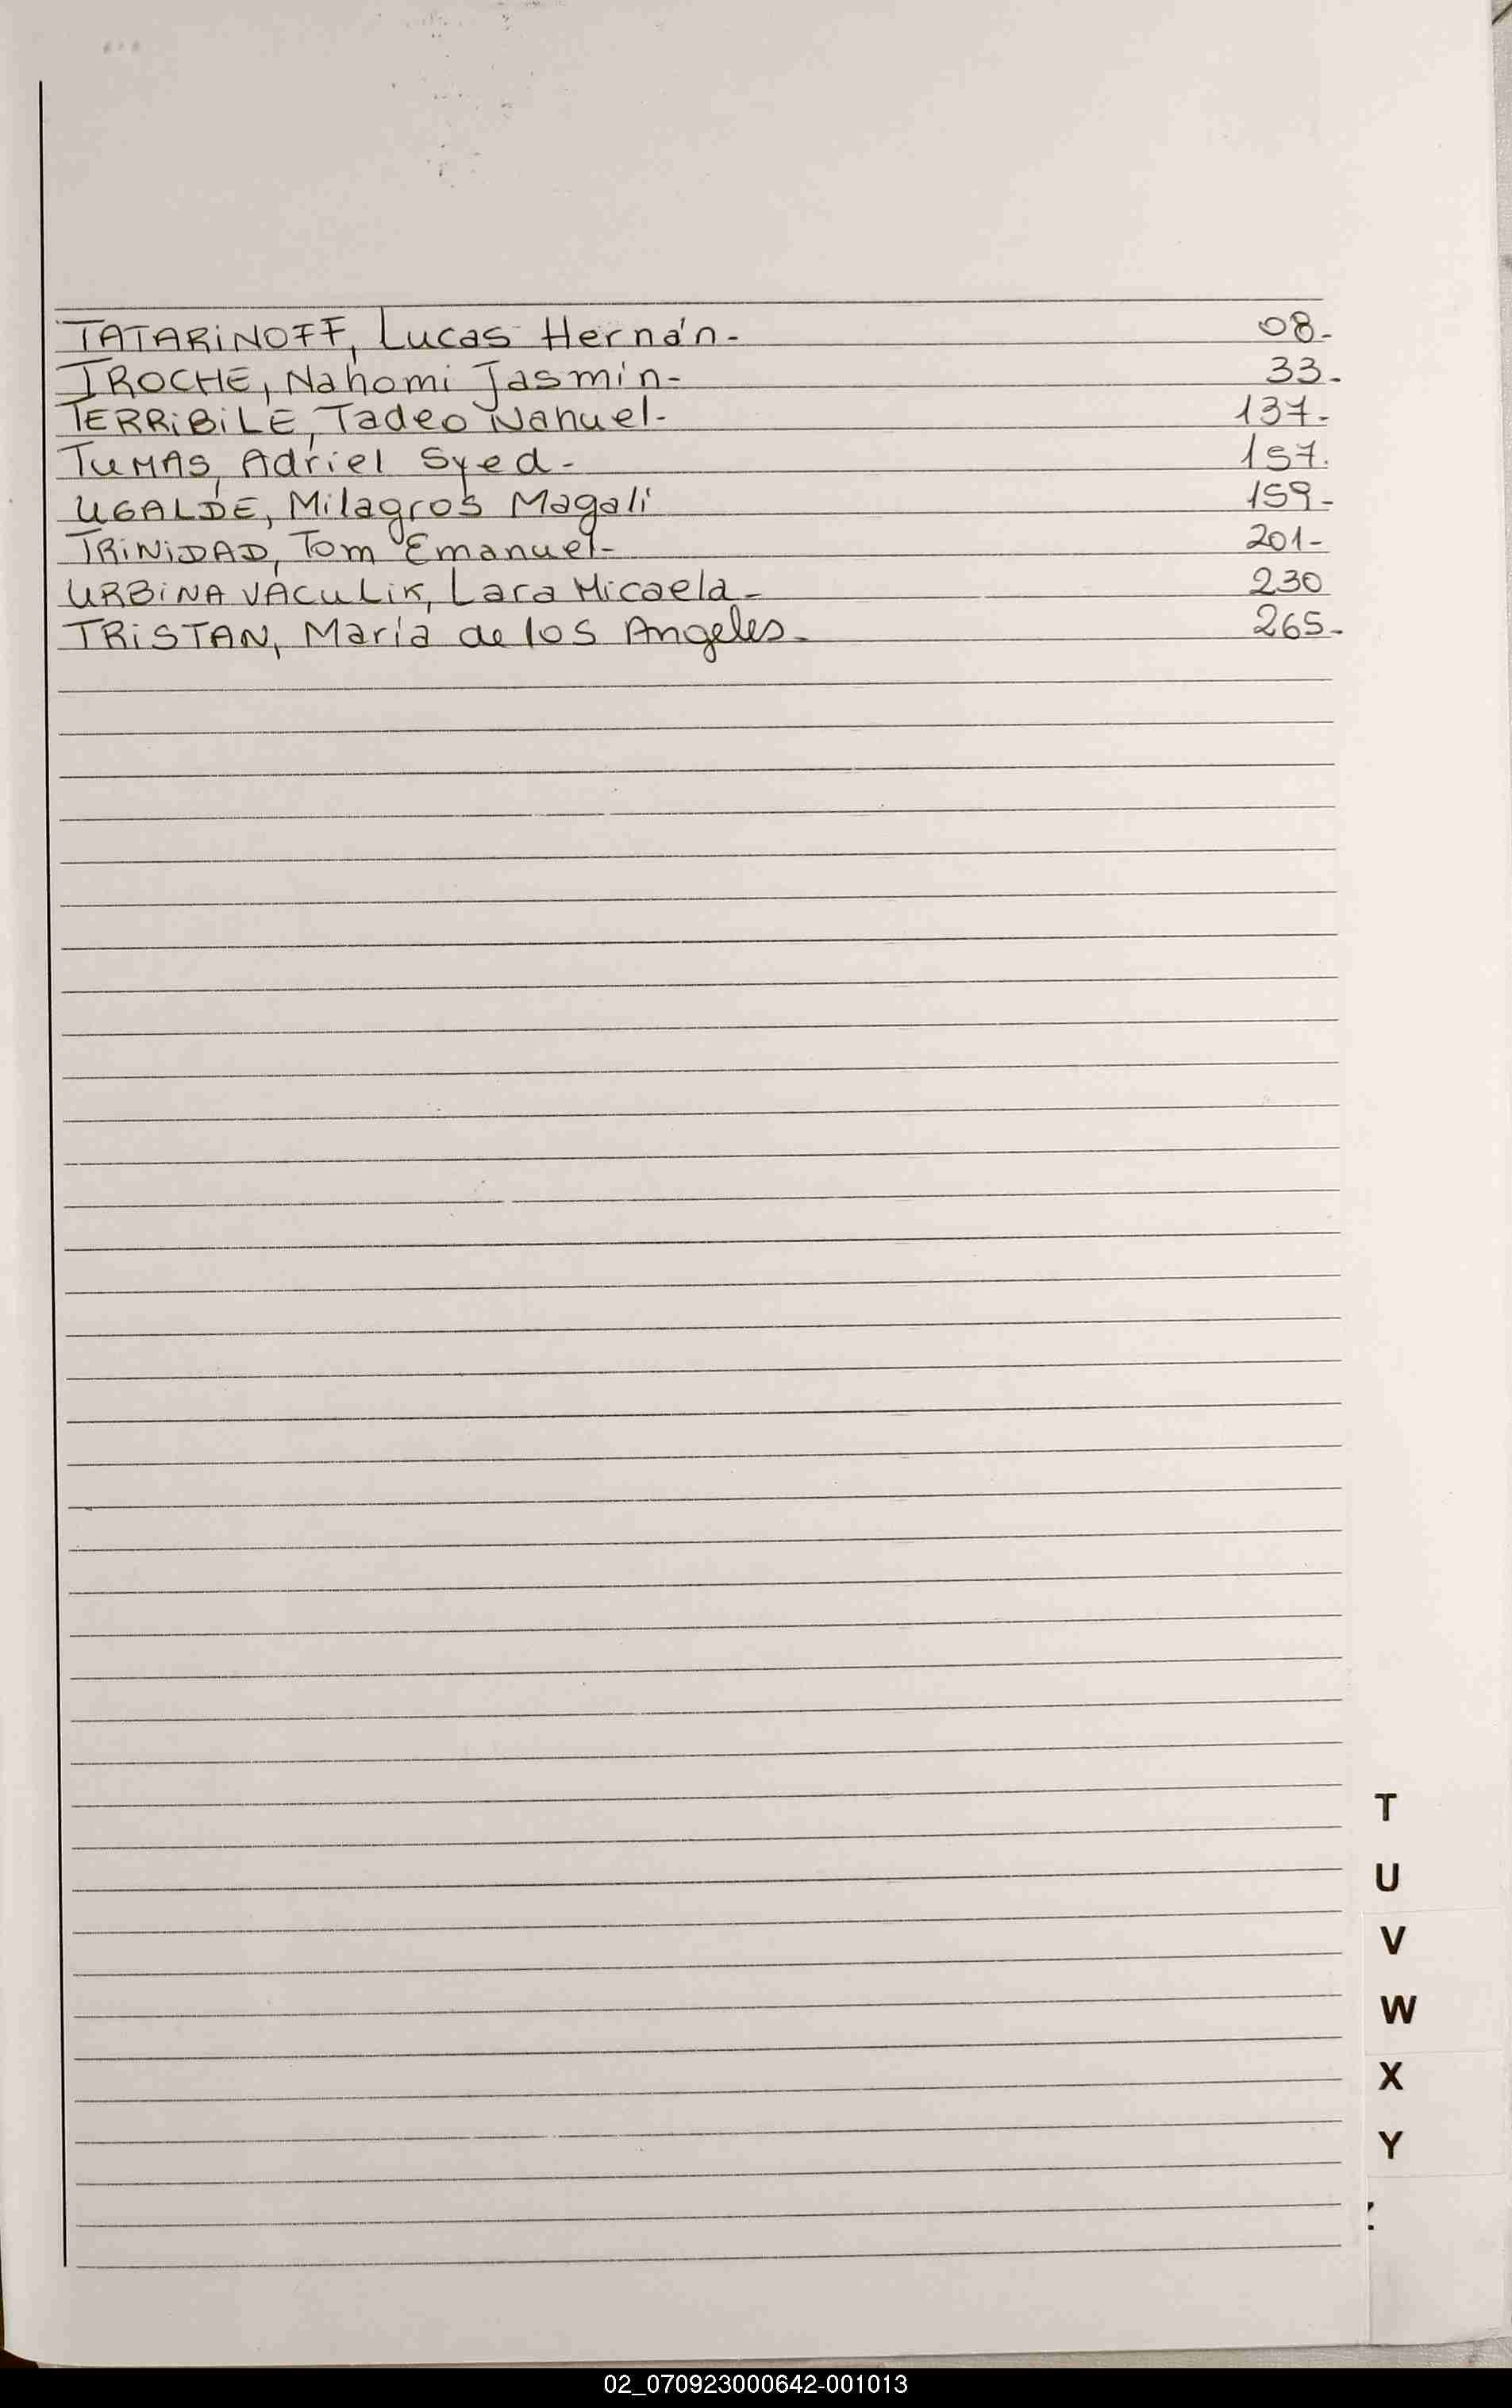 TATARINOFF, Lucas Hernán- 08-
TROCHE, Nahomi Jasmín- 33-
TERRIBILE, Tadeo Nahuel- 137-
TUMAS, Adriel Syed- 157.
UGALDE, Milagros Magalí 159-
TRINIDAD, Tom Emanuel- 201-
URBINA VACULIK, Lara Micaela- 230
TRISTAN, María de los Angeles- 265-
T
U
V
W
X
Y
Z
02_070923000642-001013